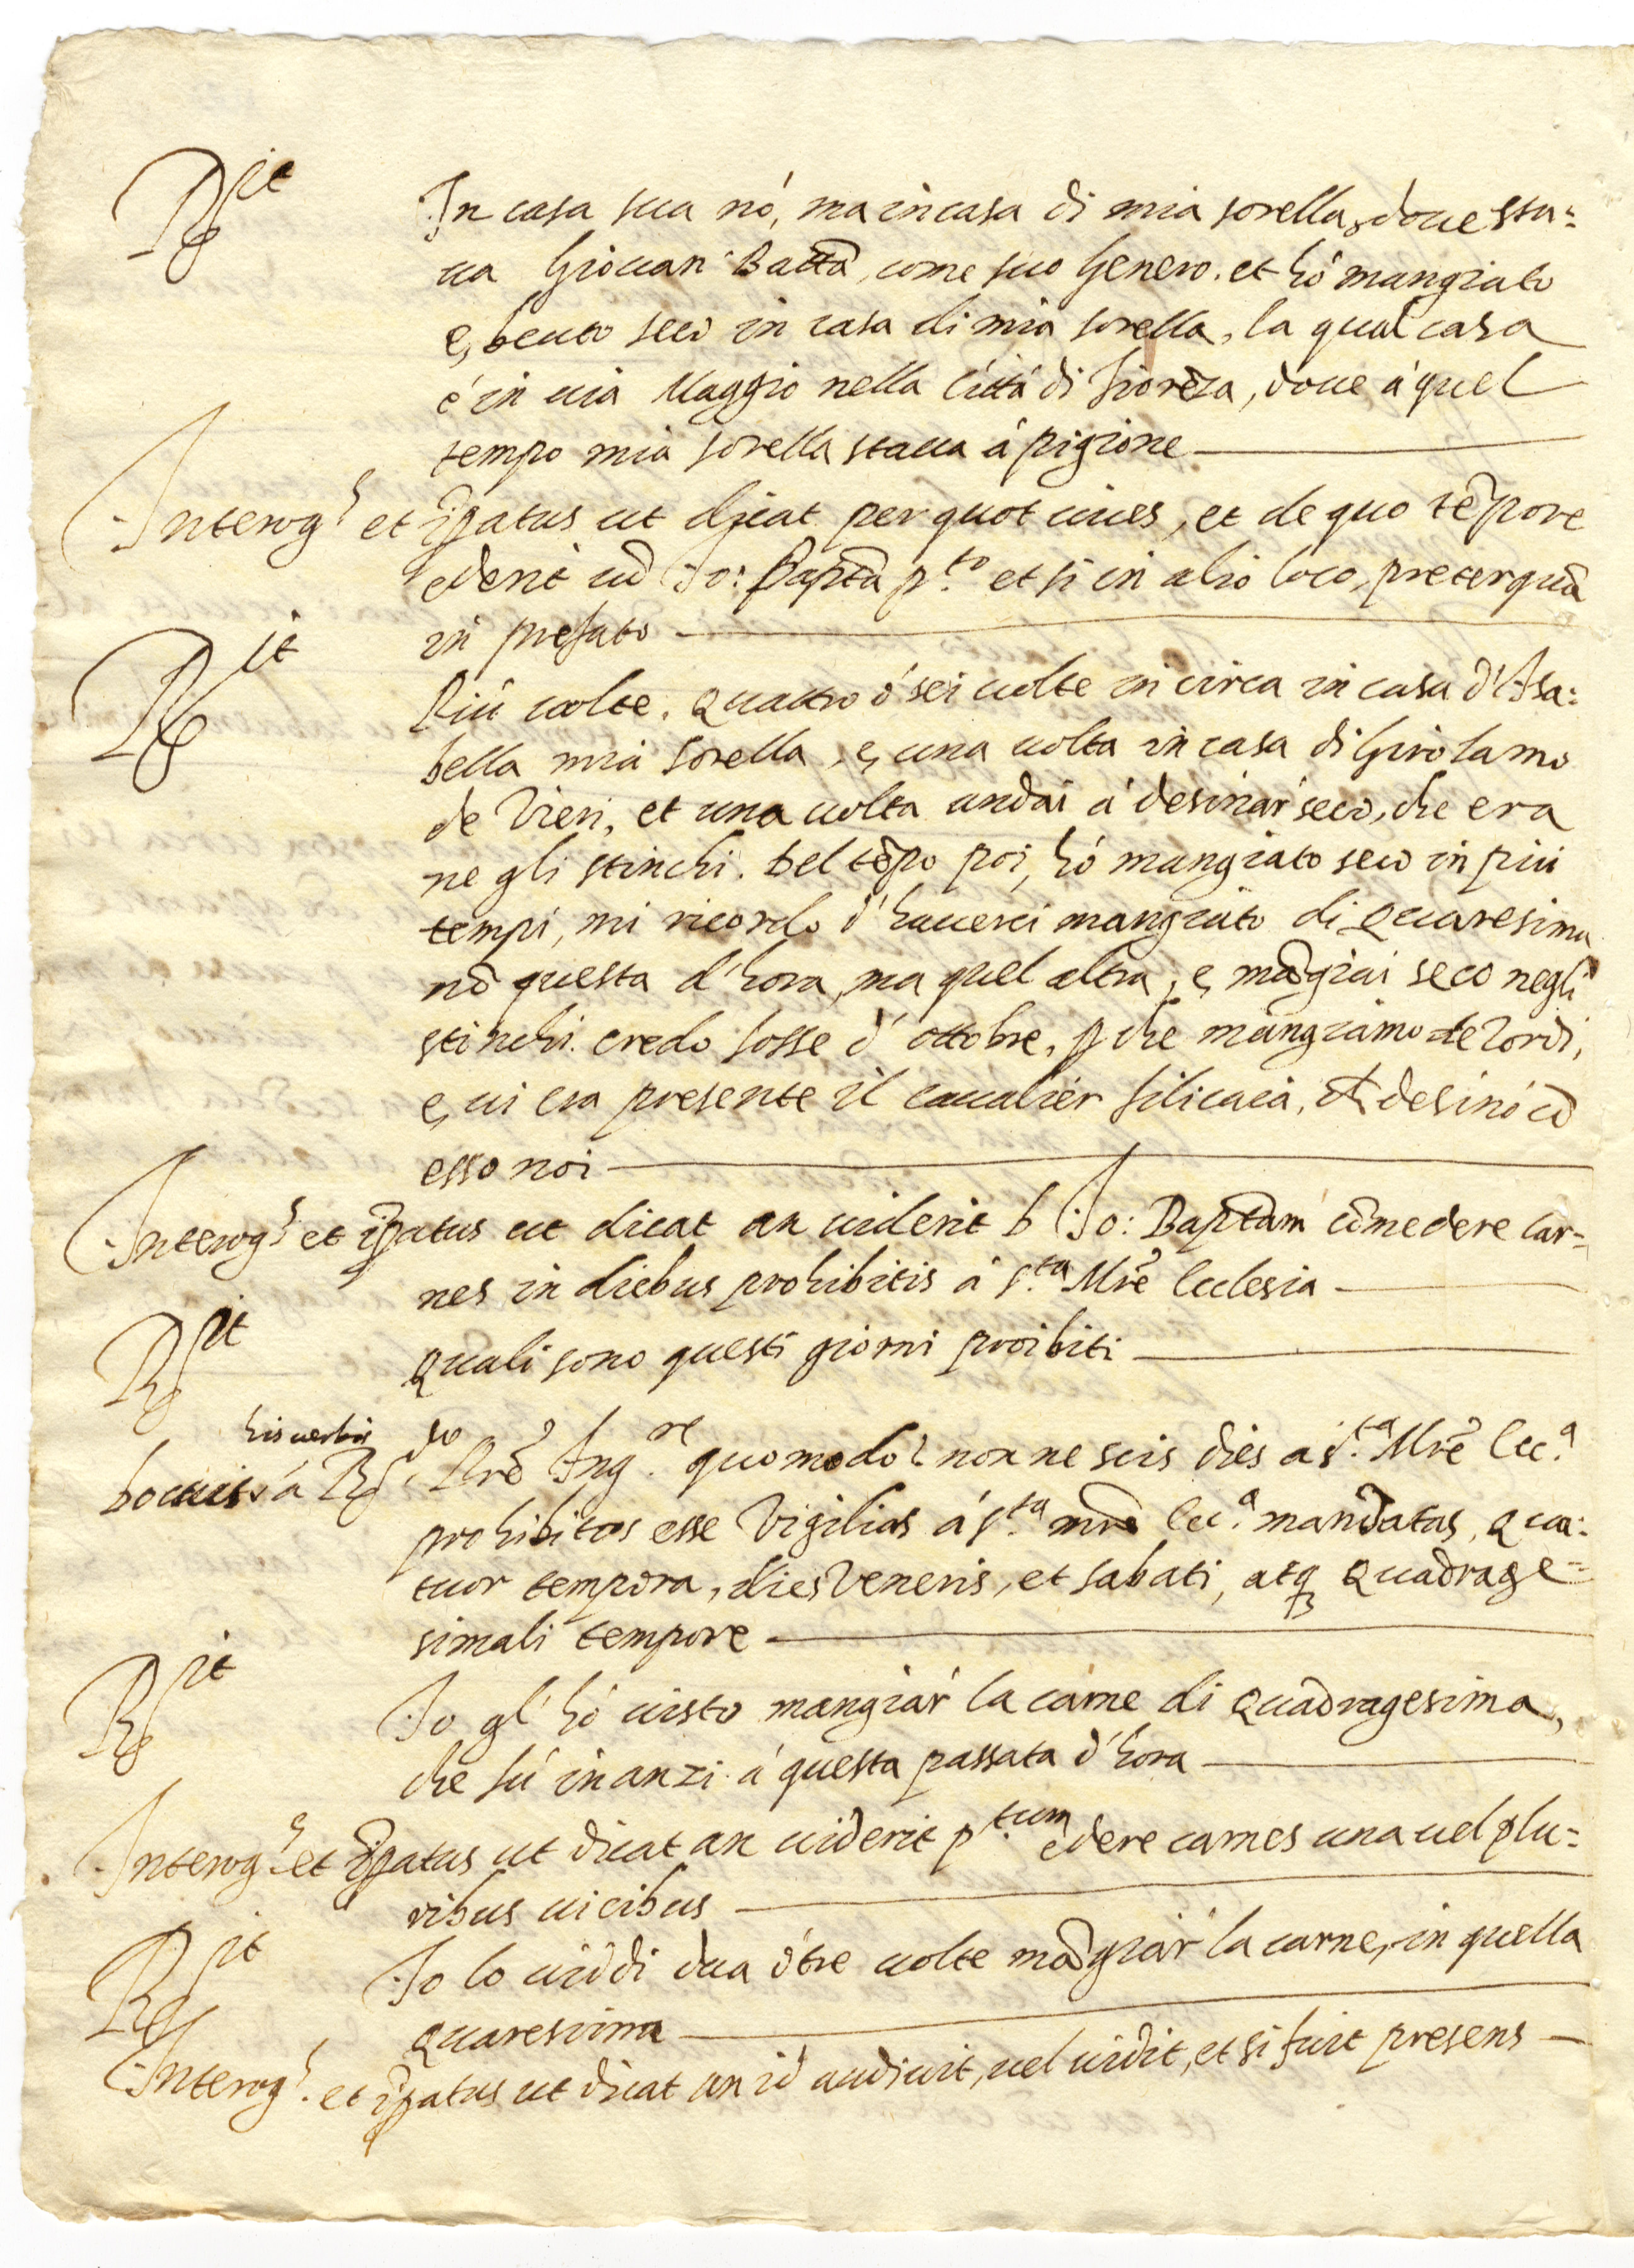 R.it In casa sua nó, ma in casa di mia sorella, doue sta=
ua Giouan Batta, come suo Genero. et hó mangiato
e, beuto seco in casa di mia sorella, la qual casa
é in uia Maggio nella Cittá di Fiorẽza, doue á quel
tempo mia sorella staua á pigione
Interrog.s et ĩpatus ut dicat per quot uices, et de quo tẽpore
ederit cũ Jo: Baptã p.to et si in alio loco, preterquã
in prefato
R.it Piú uolte. Quattro ó sei uolte in circa in casa d'Isa:
bella mia sorella, e, una uolta in casa di Girolamo
de Vieri, et una uolta andai á desinar seco, che era
ne gli stinchi. Del tẽpo poi, hó mangiato seco in piú
tempi, mi ricordo d'hauerci mangiato di Quaresima
nõ questa d'hora, ma quel altra, e, mãgiai seco negli
stinchi. credo fosse d'ottobre, p che mangiamo de Tordi,
e, ui era presente il caualier filicaia, et desinó cõ
esso noi
Interrog.s et ĩpatus ut dicat an uiderit D Jo: Baptam cõmedere Car=
nes in diebus prohibitis á S.ta Mrẽ Ecclesia
R.it Quali sono questi giorni proibiti
his uerbis
Do[minu]s á R.do Prẽ Inq.re quomodo? nonne scis dies a S.ta Mrẽ Ecc.a
prohibitos esse Vigilias á S.ta mrẽ Ecc.a mandatas, Qua:
tuor tempora, dies Veneris, et sabati, atq Quadrage=
simali tempore
R.it Io gl'hó uisto mangiár la carne di Quadragesima,
che fú inanzi á questa passata d'hora
Interrog.s et ĩpatus ut dicat an uiderit p.tum edere carnes una uel plu=
ribus uicibus
R.it Io lo uiddi dua ó tre uolte mãgiar la carne, in quella
Quaresima
Interrog.s et ĩpatus ut dicat an id audiuit, uel uidit, et si fuit presens